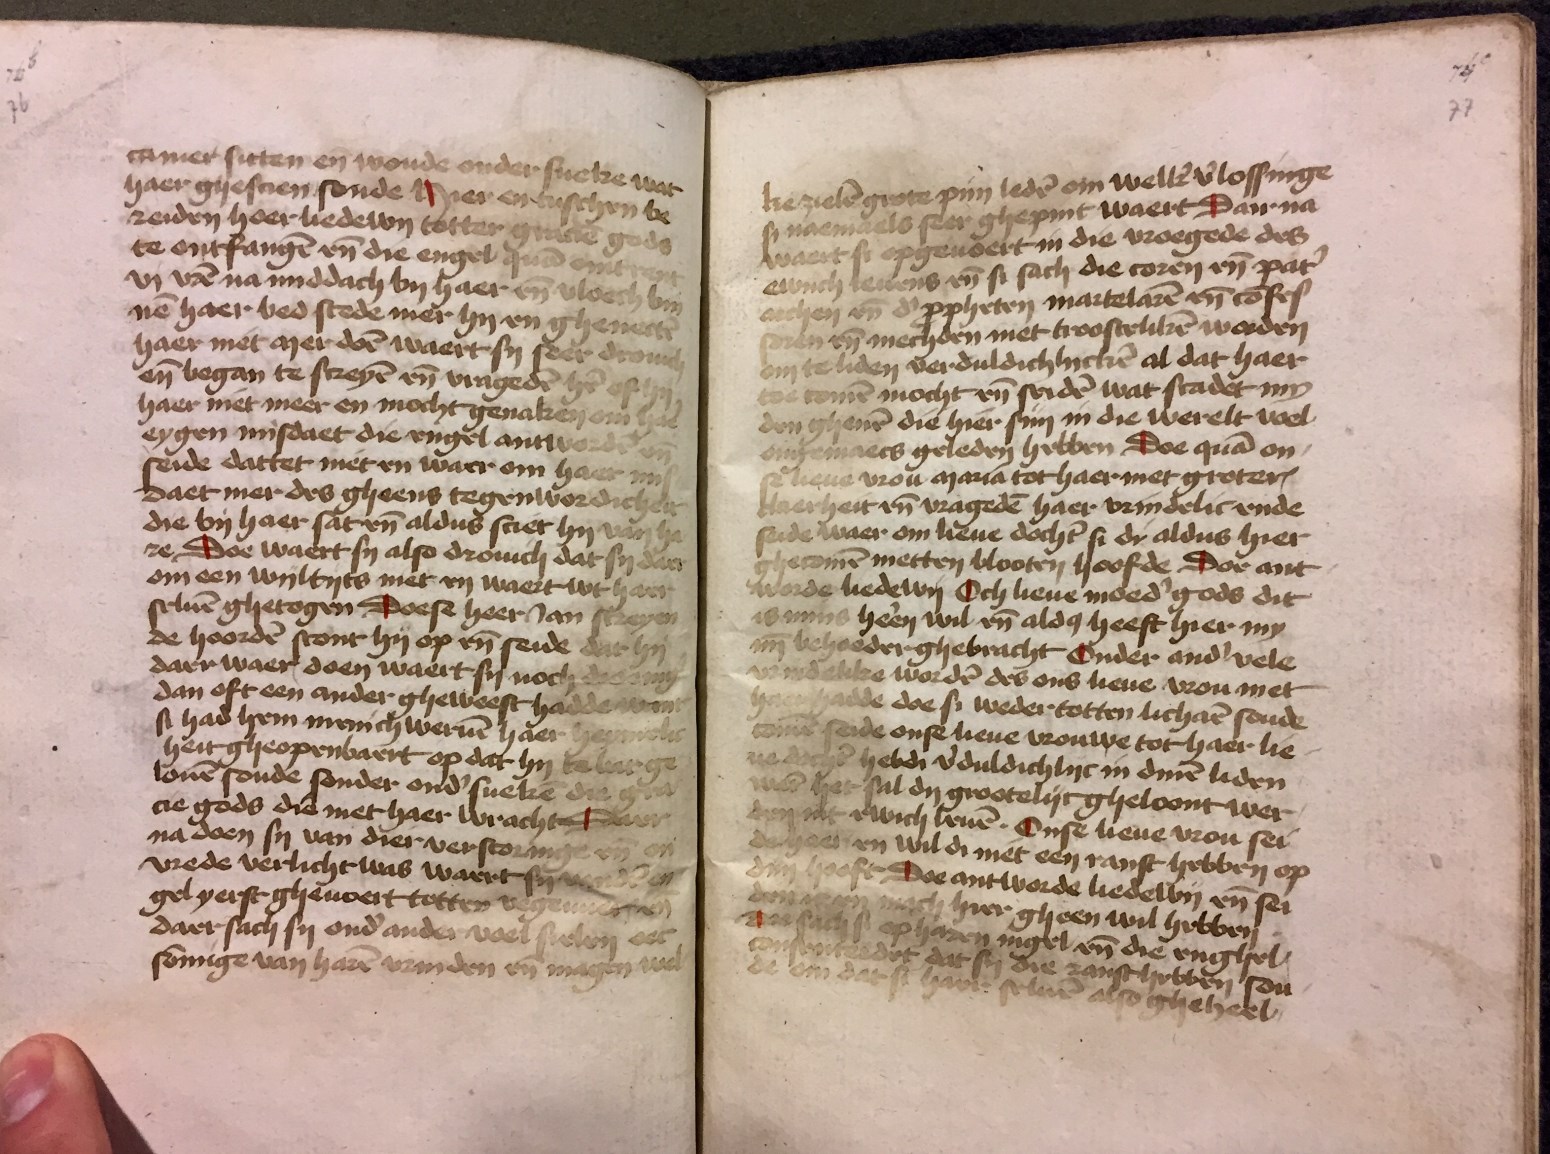 76
camer sitten en̄ woude onder sueke wat
haer ghescien soude Hier en tusschen be
reiden heer liedewij totter gracië gods
te ontfangē en̄ die engel quā omtrent
vi vrē na middach bij haer en̄ vloech bin
nē haer bed stede mer hij en gheneecte
haer niet mer doē waert sij seer drouich
en̄ began te screyē en̄ vragedē hē of hij
haer niet meer en mocht genaken om haer
eygen misdaet die engel antworde en̄
seide dattet niet en waer om haer mis
daet mer des gheens tegenwordicheit
die bij haer sat en̄ aldus sciet hij van ha
re Doe waert sij also drouich dat sij daer
om een wijltijts niet en waert wt haer
seluē ghetogen Doese heer Jan screyen
de hoordē stont hij op en̄ seide dat hij
daer waer doen waert sij noch
dan oft een ander gheweest hadde want
si had hem menich weruē haer heymelic
heit gheopenbaert op dat hij te bat ge
louē soude sonder ond' sueke die gra
cie gods die met haer wracht Daer
na doen sij van dier verstoringe en̄ on
vrede verlicht was waert sij
gel yerst gheuoert totten vegeuuer en̄
daer sach sij ond' ander voel sielen oec
sōmige van harē vrinden en̄ magen wel
77
ke zielē grote pijn ledē om welk' v'lossinge
si naemaels seer ghepint waert Dair na
waert si opgeuoert in die vroegede des
ewich leuens en̄ si sach die coren en̄ pat'
archen en̄ d' ꝓpheten martelarē en̄ cōfes
soren en̄ mechden met troostelikē worden
om te liden verduldichlyckē al dat haer
toe comē mocht en̄ seidē wat scadet my
den ghenē die hier sijn in die werelt voel
ongemaecs geleden hebben Doe quā on
se lieue vrou maria tot haer met groter
klaerheit en̄ vragedē haer vrindelic ende
seide waer om lieue docht' si dy aldus hier
ghecomē metten blooten hoofde Doe ant
worde liedewij Och lieue moed' gods dit
is mins hēren wil en̄ aldꝯ heeft hier my
mī behoeder ghebracht Onder and' vele
vrindelike wordē des ons lieue vrou met
haer hadde doe si weder totten lichaē soude
comē seide onse lieue vrouwe tot haer lie
ue docht' hebdi v'duldichlyc in dinē liden
het sal dy grootelijc gheloont wer
den int ewich leuē. Onse lieue vrou sei
de heer en wil di niet een ranst hebben op
dijn hooft Doe antworde liedewij en̄ sei
mach hier gheen wil hebben
Doe sach si op haren ingel en̄ die enghel
consenteerdet dat sij die ranst hebben sou
de om dat si haer seluē also gheheel